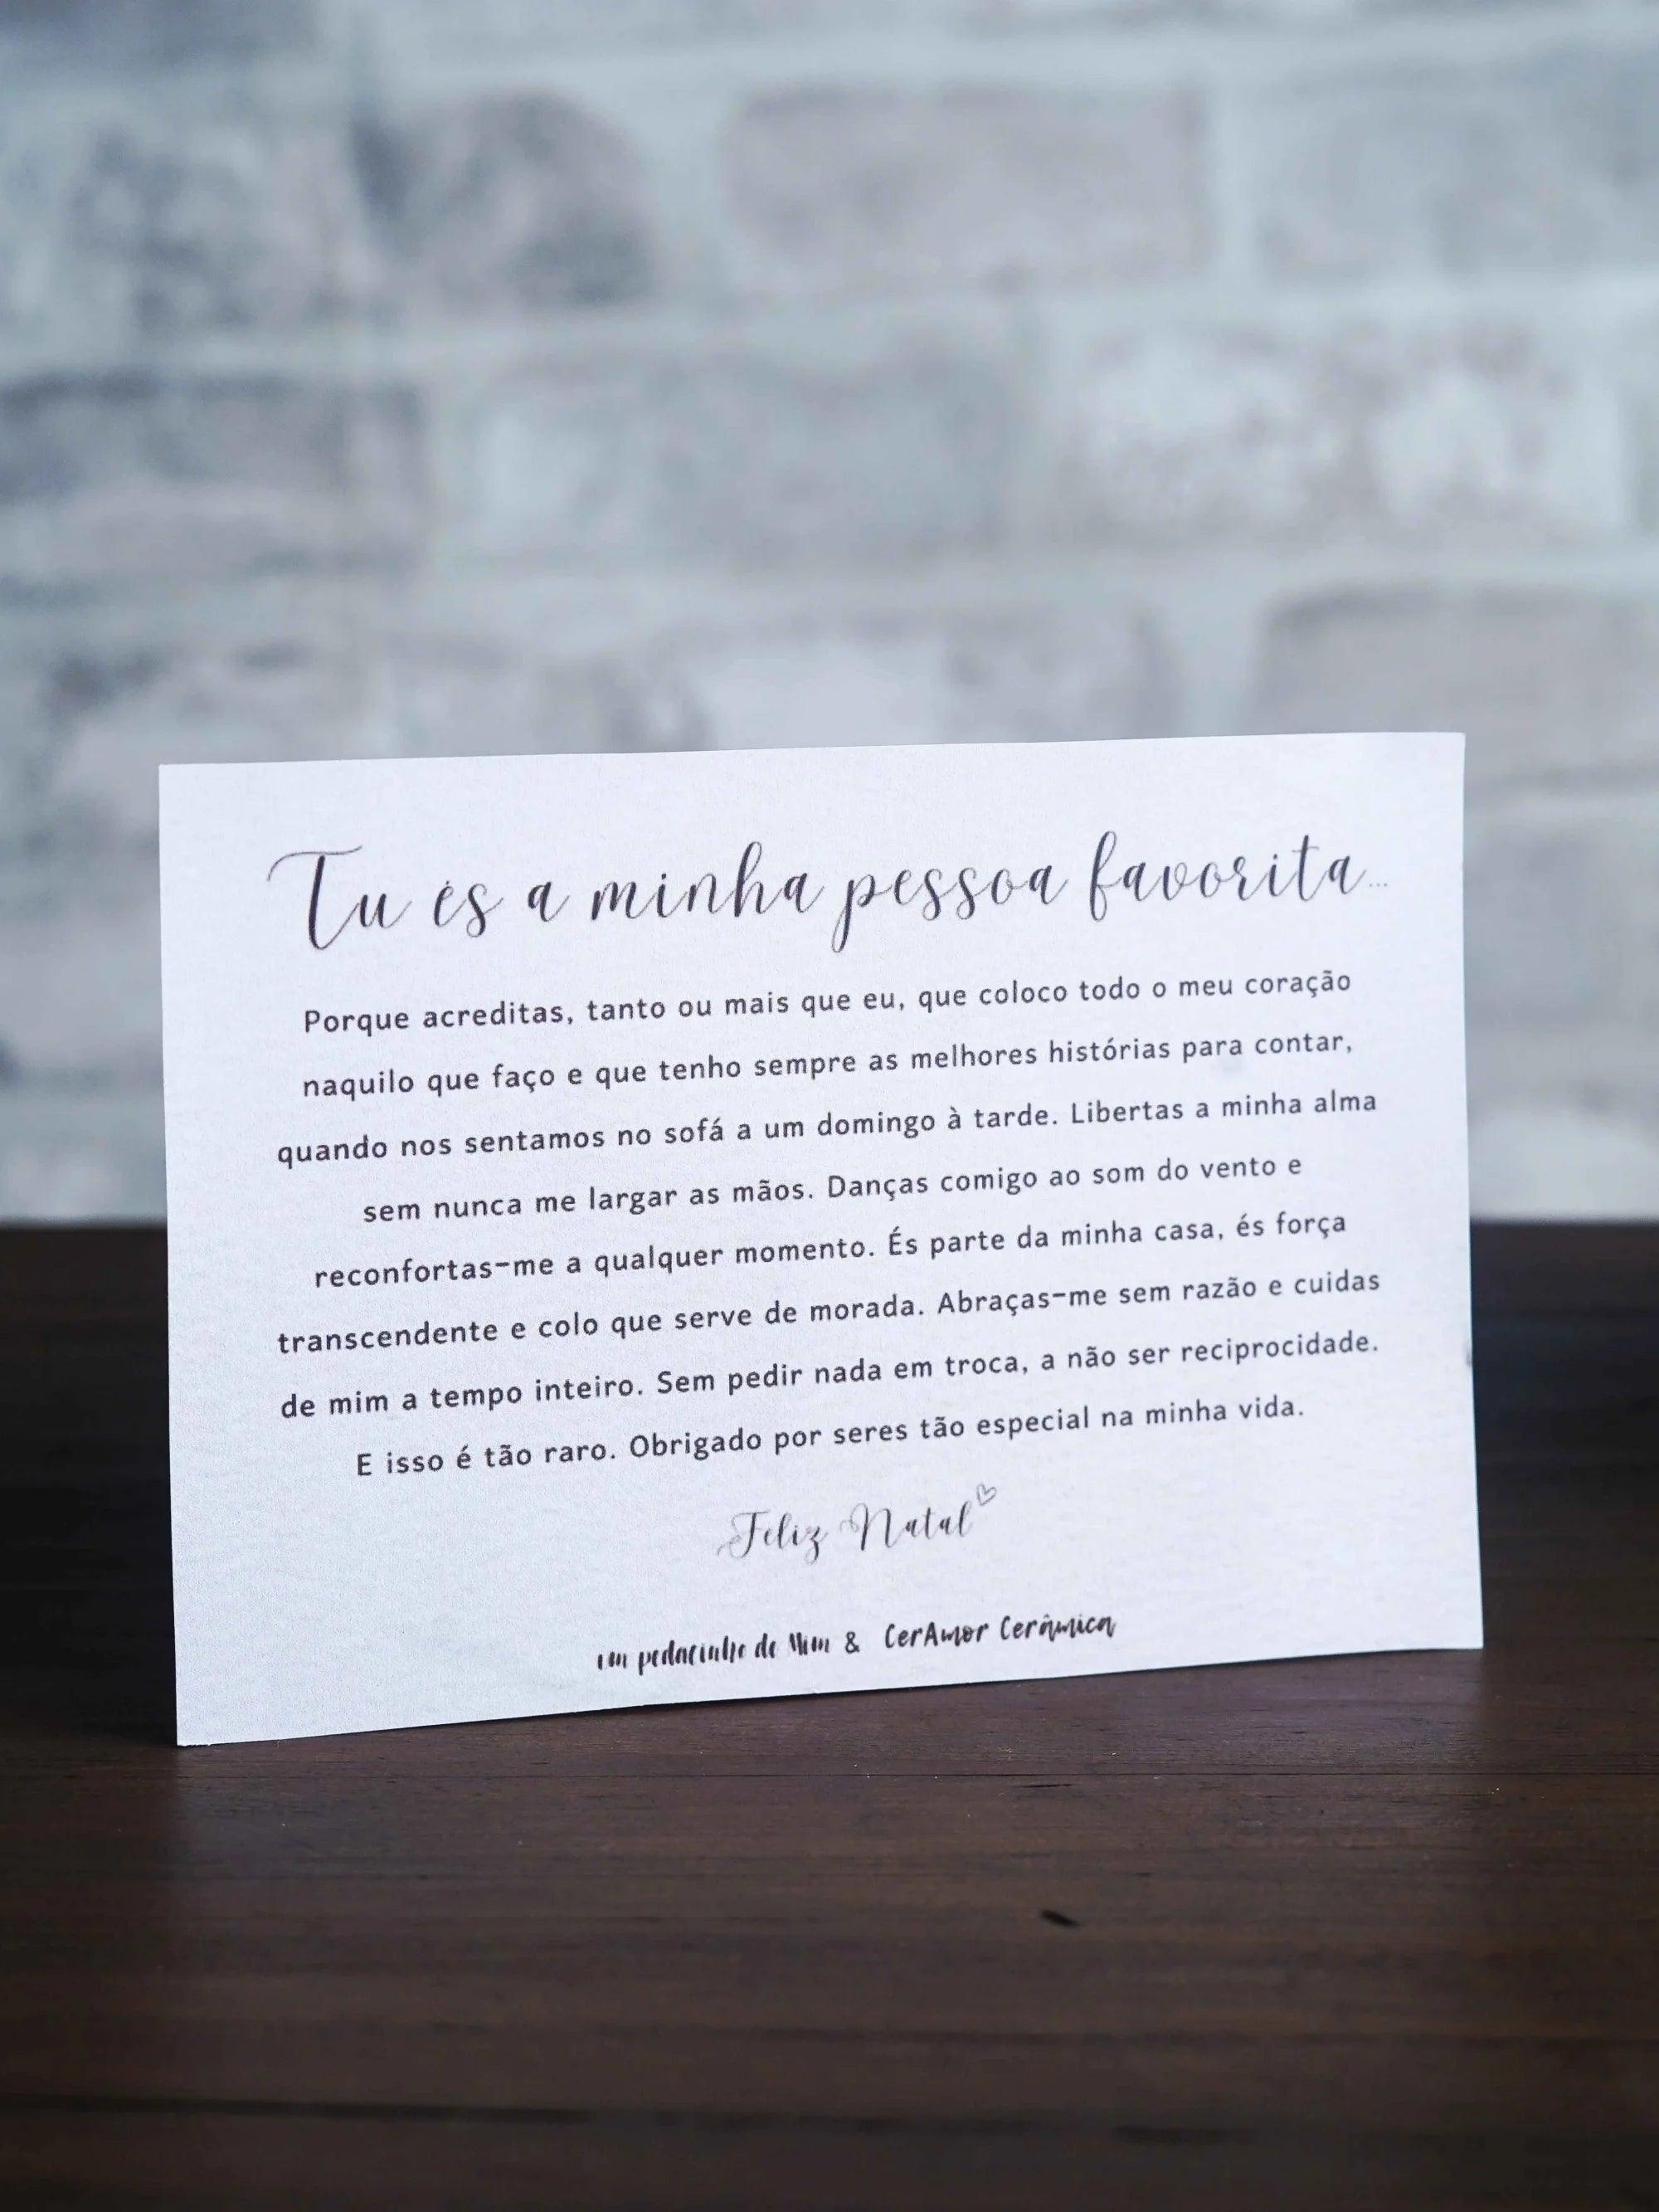 Tu és a minha pessoa favorita...
Porque acreditas, tanto ou mais que eu, que coloco todo o meu coração
naquilo que faço e que tenho sempre as melhores histórias para contar,
quando nos sentamos no sofá a um domingo à tarde. Libertas a minha alma
sem nunca me largar as mãos. Danças comigo ao som do vento e
reconfortas-me a qualquer momento. És parte da minha casa, és força
transcendente e colo que serve de morada. Abraças-me sem razão e cuidas
de mim a tempo inteiro. Sem pedir nada em troca, a não ser reciprocidade.
E isso é tão raro. Obrigado por seres tão especial na minha vida.
Feliz Natal
um pedacinho de Mim & CerAmor Cerâmica